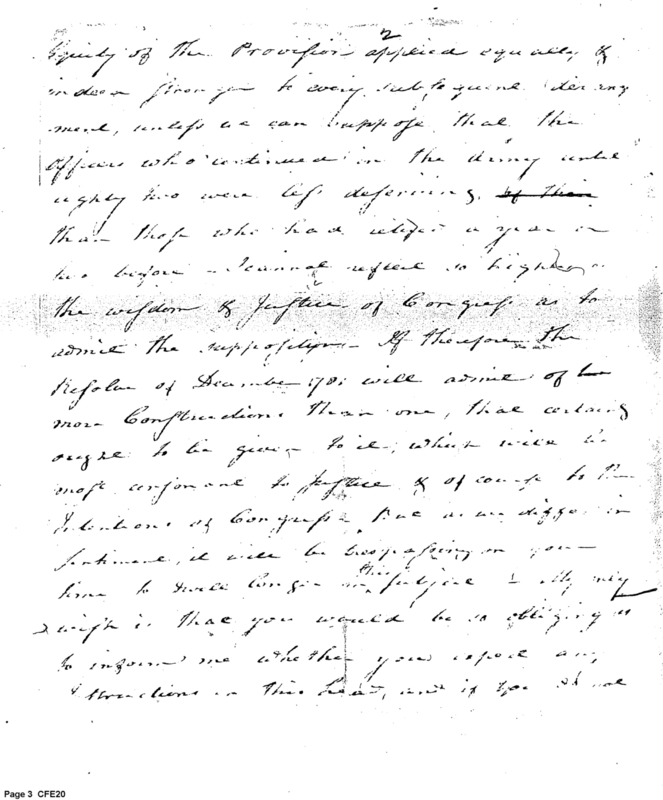 2
Equity of the Provision applied equally &
indeed stronger to every subsequent derang
ment, unless we can suppose that the
Officers who continued in the Army until
eighty two were less deserving, of than
than those who had retired a year or
two before — I cannot reflect so highly on
the wisdom & Justice of Congress as to
admit the supposition — If therefore the
Resolve of December 1781 will admit of
more Constructions than one, that certainly
ought to be given to it, which will be
most consonant to Justice & of course to the
Intentions of Congress But as we differ in
sentiment, it will be trespassing on your
time to dwell longer on this subject — My only
wish is that you would be so obliging as
to inform me whether you expect any
Instructions on this head, and if you do not
Page 3 CFE20